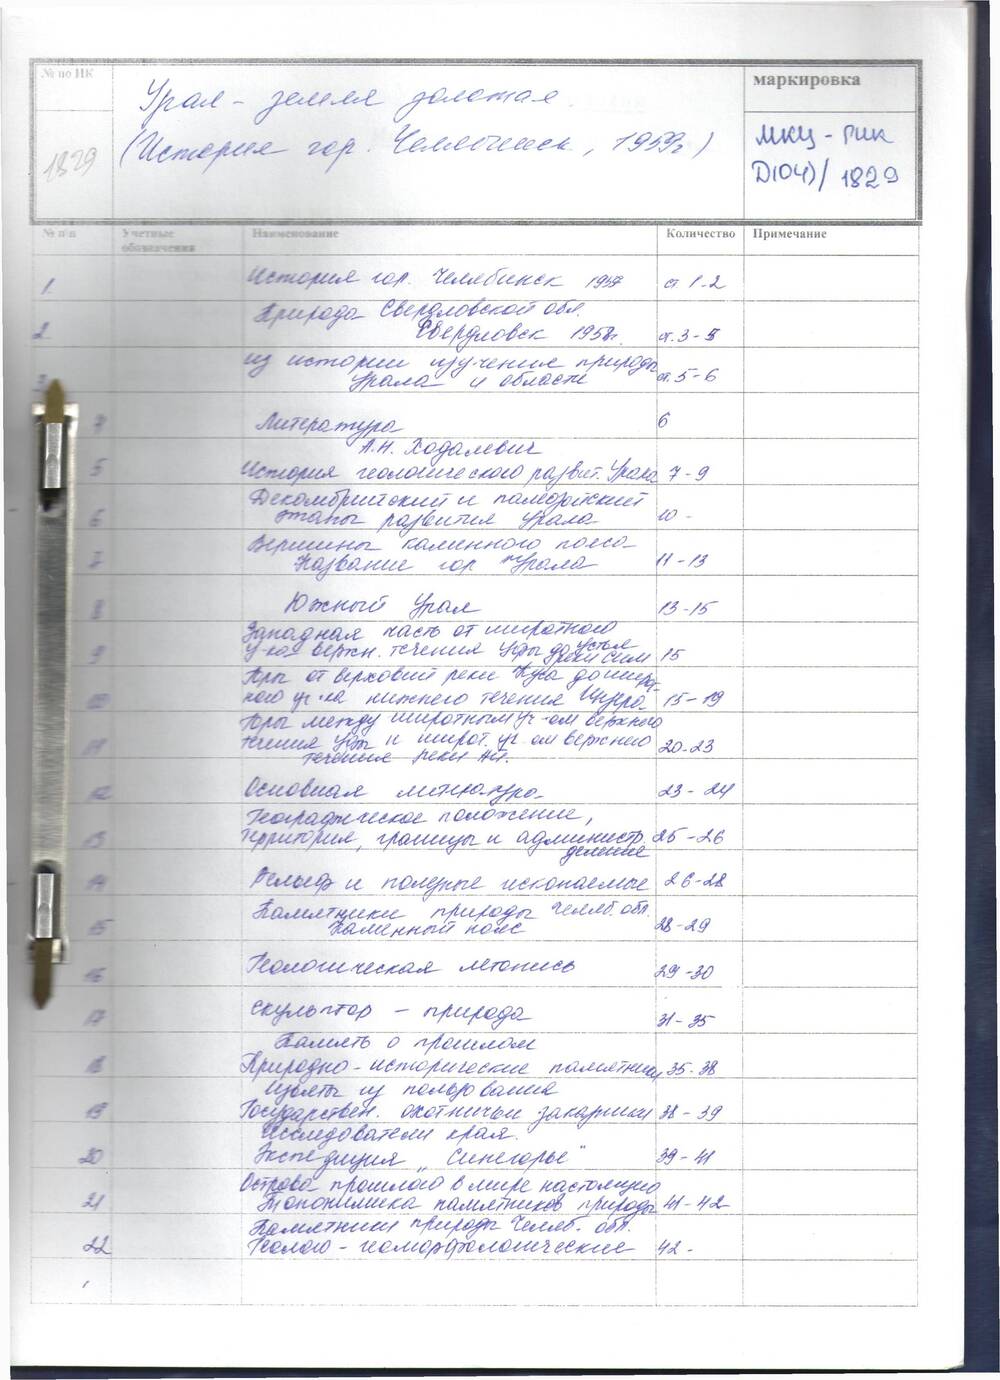 № по ИК
1829
Урал - земля золотая.
(История гор. Челябинск, 1959г)
маркировка
МКЦ - РИК
Д(04)/1829
№ п\п Учетные обозначения Наименование Количество Примечание
1. История гор. Челябинск ст 1-2
2 Природа Свердловской обл.
Свердловск 1958г. ст. 3-5
3 из истории изучения природы
Урала и области ст. 5-6
Литература 6
А.Н. Ходалевич
5 История геологического развит. Урала 7-9
6 Докембрийский и палеозойский
этапы развития Урала 10 -
7 Вершины каменного пояса
Название гор Урала 11-13
8 Южный Урал 13-15
Западная часть от широтного
9 уч-ка верхн. течения Уфы до устья
реки Сим 15
10 Горы от верховий реки Куса до широт-
ного уч-ка нижнего течения 15-19
11 Горы между широтным уч-ом верхнего
течения Уфы и широт. уч-ом верхнего
течения реки Ай. 20-23
12 Основная литература 23-24
Географическое положение,
13 территория, границы и администр. 25-26
деление
14 Рельеф и полезные ископаемые 26-28
Памятники природы Челяб. обл.
15 Каменный пояс 28-29
16 Геологическая летопись 29-30
17 скульптор - природа 31-35
Память о прошлом
18 Природно-исторические памятники 35-38
Изъяты из пользования
19 Государствен. охотничьи заказники 38-39
Исследователи края.
20 Экспедиция „Синегорье" 39-41
Острова прошлого в мире настоящего
21 Топонимика памятников природы 41-42
Памятники природы Челяб. обл.
22 Геолого-геоморфологические 42 -